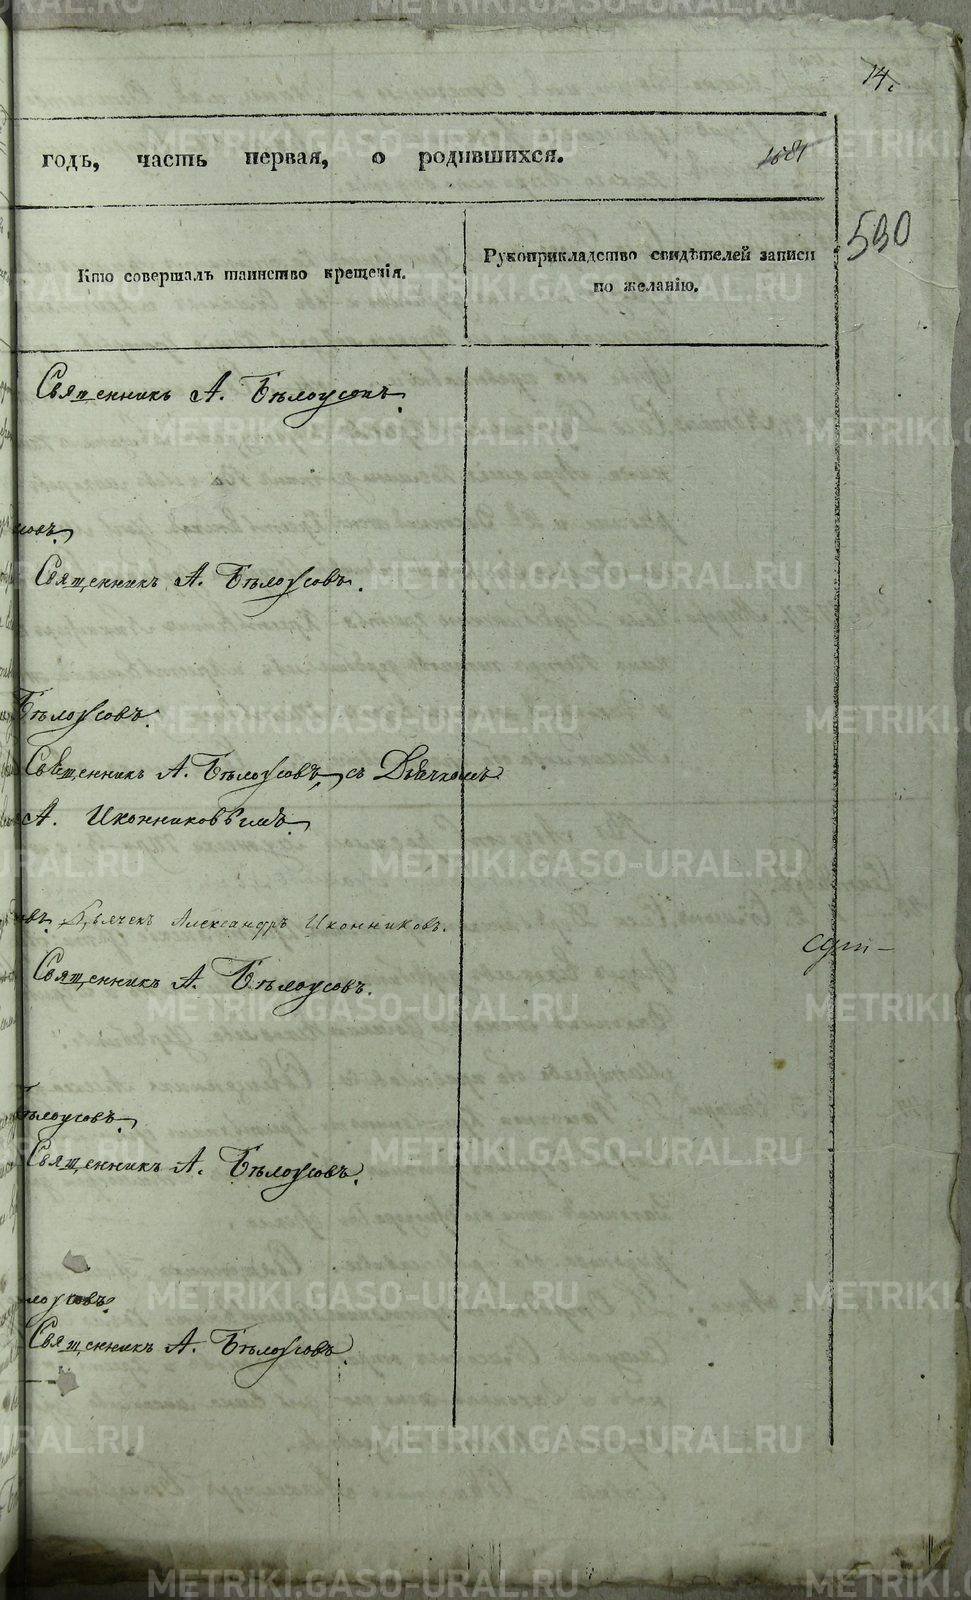 14.
годъ, часть первая, о родившихся.
1681
530
Кто совершалъ таинство крещенія.
Рукоприкладство свидѣтелей записи
по желанію.
Священникъ А. Бѣлоусовъ.
совъ.
Священникъ А. Бѣлоусовъ.
Бѣлоусовъ.
Священникъ А. Бѣлоусовъ, съ Дьячкомъ
А. Иконниковымъ.
овъ. Дьячекъ Александръ Иконниковъ.
Священникъ А. Бѣлоусовъ.
Бѣлоусовъ.
Священникъ А. Бѣлоусовъ.
лоусовъ.
Священникъ А. Бѣлоусовъ.
METRIKI.GASO-URAL.RU